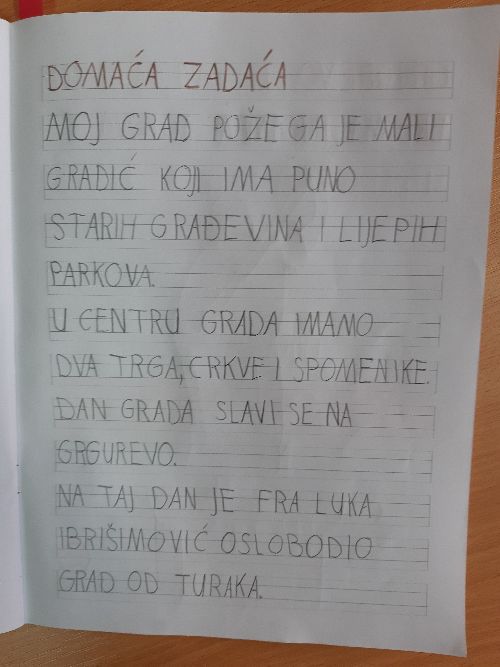 DOMAĆA ZADAĆA
MOJ GRAD POŽEGA JE MALI
GRADIĆ KOJI IMA PUNO
STARIH GRAĐEVINA I LIJEPIH
PARKOVA.
U CENTRU GRADA IMAMO
DVA TRGA, CRKVE I SPOMENIKE.
DAN GRADA SLAVI SE NA
GRGUREVO.
NA TAJ DAN JE FRA LUKA
IBRIŠIMOVIĆ OSLOBODIO
GRAD OD TURAKA.